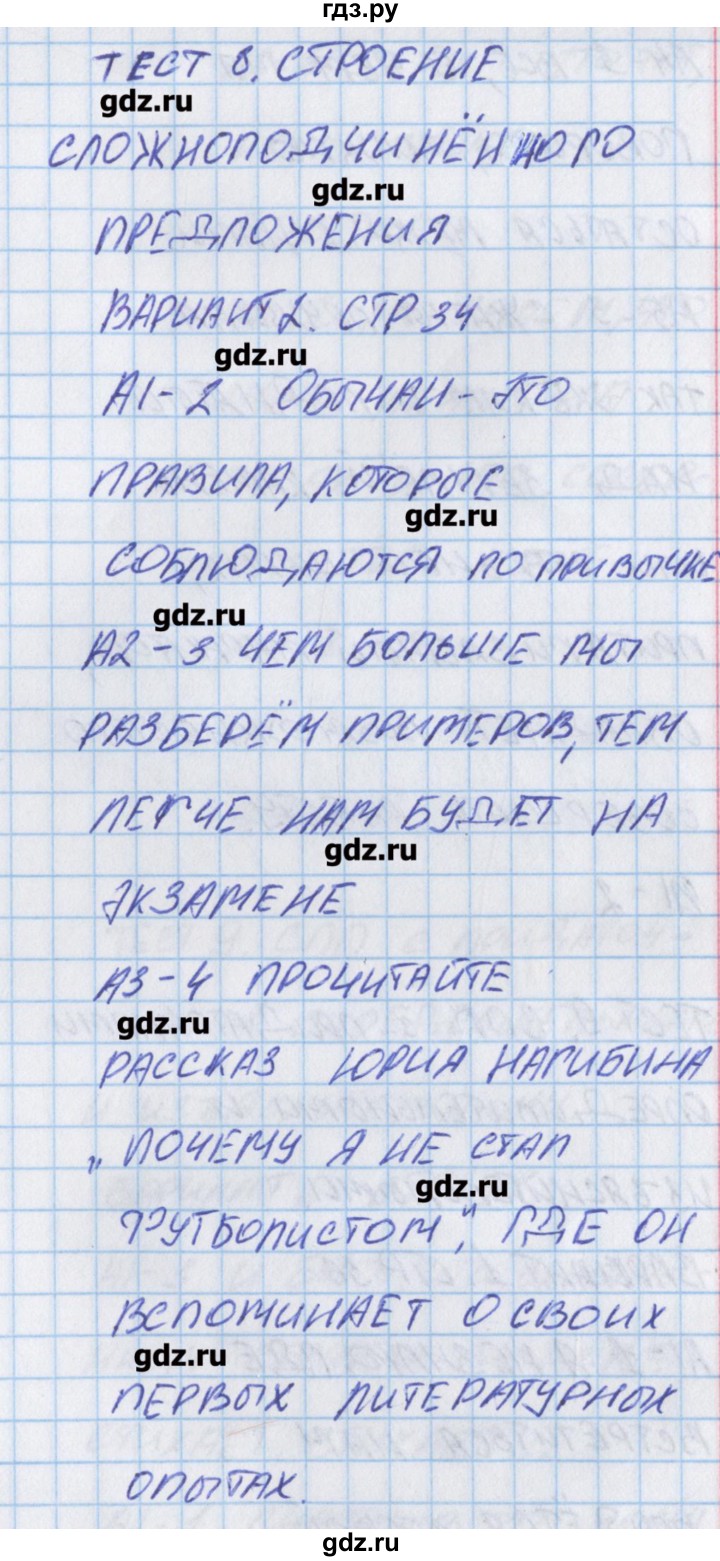 гдз.ру
ТЕСТ 8. СТРОЕНИЕ
gdz.ru
СЛОЖНОПОДЧИНЁННОГО
gdz.ru
ПРЕДЛОЖЕНИЯ
ВАРИАНТ 2. СТР 34
gdz.ru
А1-2 ОБЫЧАИ- ЭТО
ПРАВИЛА, КОТОРЫЕ
gdz.ru
СОБЛЮДАЮТСЯ ПО ПРИВЫЧКЕ
gdz.ru
А2-3 ЧЕМ БОЛЬШЕ МЫ
РАЗБЕРЁМ ПРИМЕРОВ, ТЕМ
ЛЕГЧЕ НАМ БУДЕТ НА
gdz.ru
ЭКЗАМЕНЕ
А3-4 ПРОЧИТАЙТЕ
gdz.ru
РАССКАЗ ЮРИЯ НАГИБИНА
„ПОЧЕМУ Я НЕ СТАЛ
gdz.ru
ФУТБОЛИСТОМ", ГДЕ ОН
ВСПОМИНАЕТ О СВОИХ
gdz.ru
ПЕРВЫХ ЛИТЕРАТУРНЫХ
ОПЫТАХ.
gdz.ru